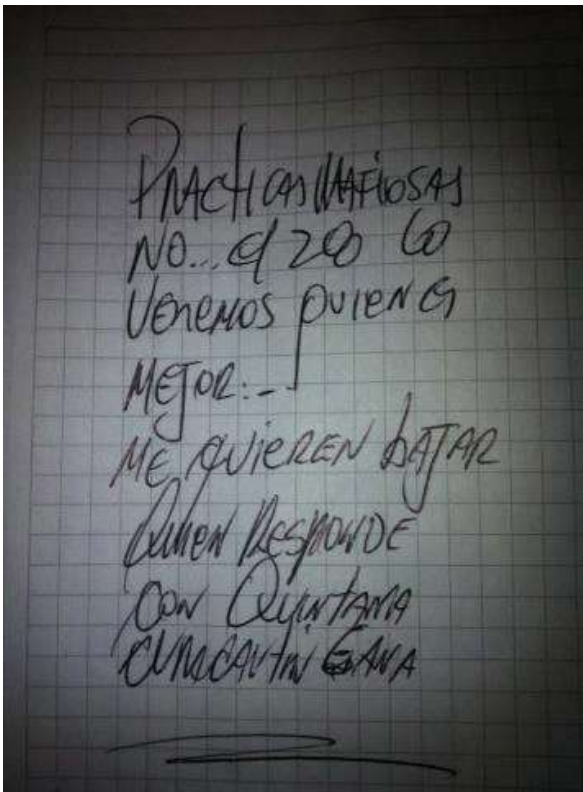 PRACTICAS MAFIOSAS
NO... el 28 lo
VEREMOS QUIEN ES
MEJOR:-
ME QUIEREN BAJAR
QUIEN RESPONDE
CON QUINTANA
CURACAUTIN GANA